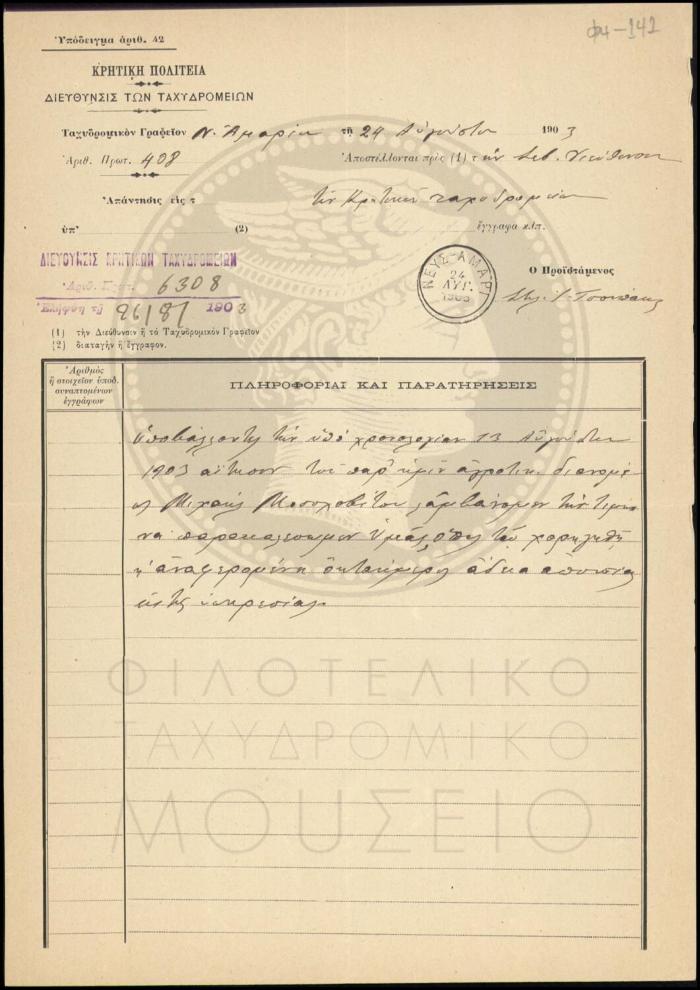 φ4-142
Ὑπόδειγμα ἀριθ. 42
ΚΡΗΤΙΚΗ ΠΟΛΙΤΕΙΑ
ΔΙΕΥΘΥΝΣΙΣ ΤΩΝ ΤΑΧΥΔΡΟΜΕΙΩΝ
Ταχυδρομικὸν Γραφεῖον Ν. Ἀμαρίου τῇ 24 Αὐγούστου 1903
Ἀριθ. Πρωτ. 408 Ἀποστέλλονται πρὸς (1) τὴν Σεβ. Διεύθυνσιν
Ἀπάντησις εἰς τ τῶν Κρητικῶν ταχυδρομείων
ὑπ' (2) ἔγγραφα κλπ.
ΔΙΕΥΘΥΝΣΙΣ ΚΡΗΤΙΚΩΝ ΤΑΧΥΔΡΟΜΕΙΩΝ
Ἀριθ. Πρωτ. 6308
Ἐλήφθη τῇ 26/8/ 1903
ΝΕΥΣ-ΑΜΑΡΙ
24
ΑΥΓ.
1903
Ὁ Προϊστάμενος
(1) τὴν Διεύθυνσιν ἢ τὸ Ταχυδρομικὸν Γραφεῖον
(2) διαταγὴν ἢ ἔγγραφον.
Ἀριθμὸς
ἢ στοιχεῖον ὑποδ.
συναπτομένων
ἐγγράφων
ΠΛΗΡΟΦΟΡΙΑΙ ΚΑΙ ΠΑΡΑΤΗΡΗΣΕΙΣ
Ὑποβάλλοντες τὴν ὑπὸ χρονολογίαν 13 Αὐγούστου
1903 αἴτησιν τοῦ παρ' ἡμῖν ἀγροτικ. διανομέ
ως Μιχαὴλ λαμβάνομεν τὴν τιμὴν
νὰ παρακαλέσωμεν Ὑμᾶς ὅπως τῷ χορηγηθῇ
ἡ ἀναφερομένη ὀκταήμερος ἄδεια ἀπουσίας
ἐκ τῆς ὑπηρεσίας.
ΦΙΛΟΤΕΛΙΚΟ
ΤΑΧΥΔΡΟΜΙΚΟ
ΜΟΥΣΕΙΟ